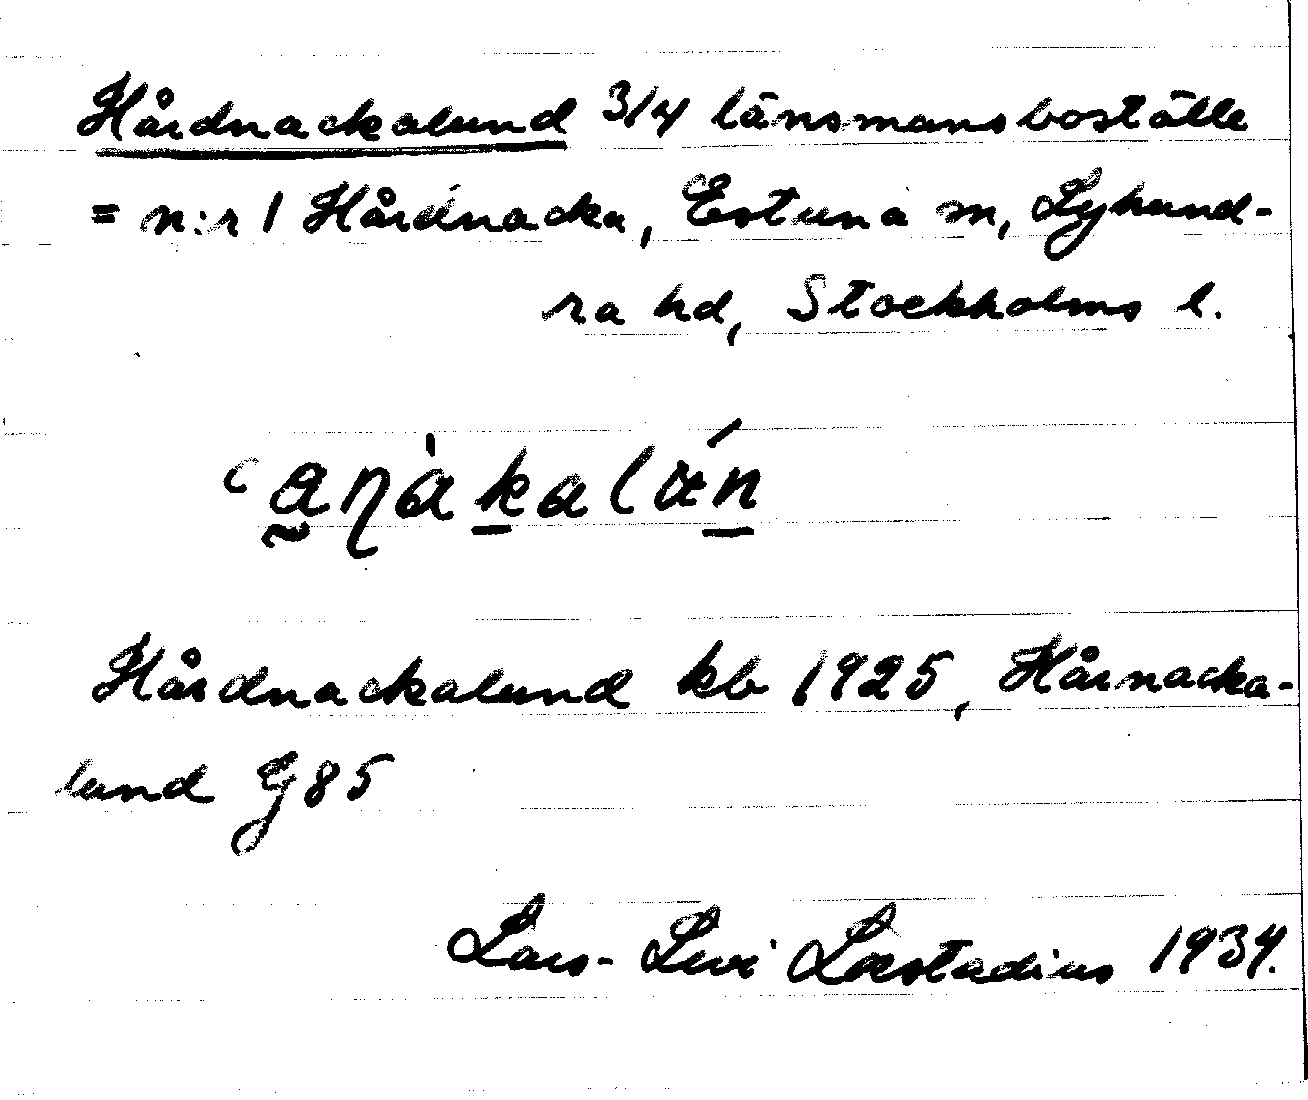 Hårdnackalund 3/4 länsmansboställe
= n:r 1 Hårdnacka, Estuna sn, Lyhund-
ra hd, Stockholms l.
Hårdnackalund kb 1925, Hårnacka-
lund G 85
Lars-Levi Læstadius 1934.